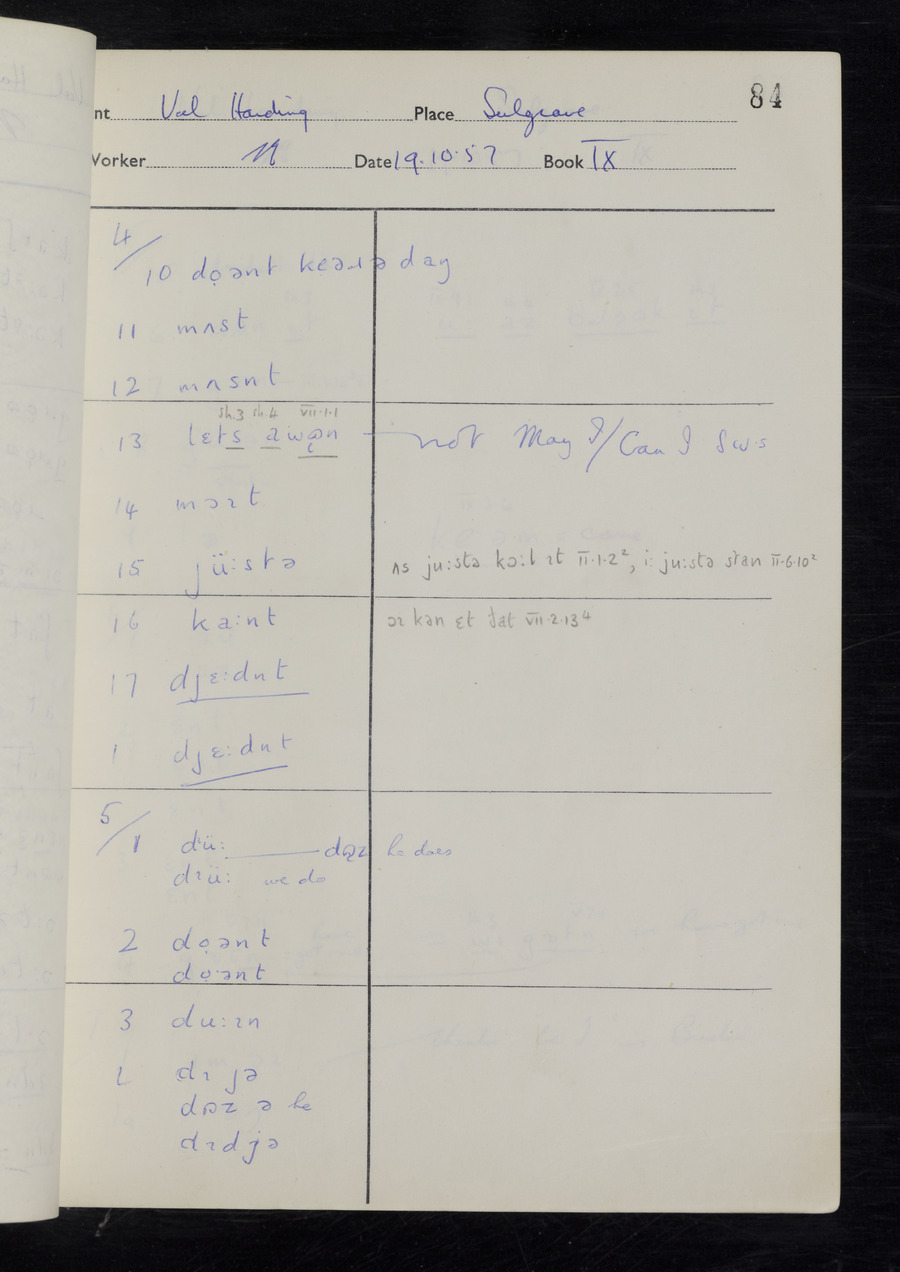 84
nt Val Harding Place Sulgrave
Worker N Date 19.10.57 Book IX
4/
10 dọənt keəɹ ə day
11 mʌst
12 mʌsnt
sh.3 sh.4 VII.1.1
13 lɛts a wɒn not May I/Can I
14 məɪt
15 jü:stə ʌs ju:stə kɔ:l ɪt II.1.2², i: ju:stə stan II.6.10²
16 ka:nt kən ɛt ðat VII.2.13⁴
17 djɛ:dnt
1 djɛ:dnt
5/
1 dü: dɒz he does
dɪü: we do
2 dọənt
dọ·ənt
3 du:ɪn
dɪ jə
dɒz ə he
dɪdjə